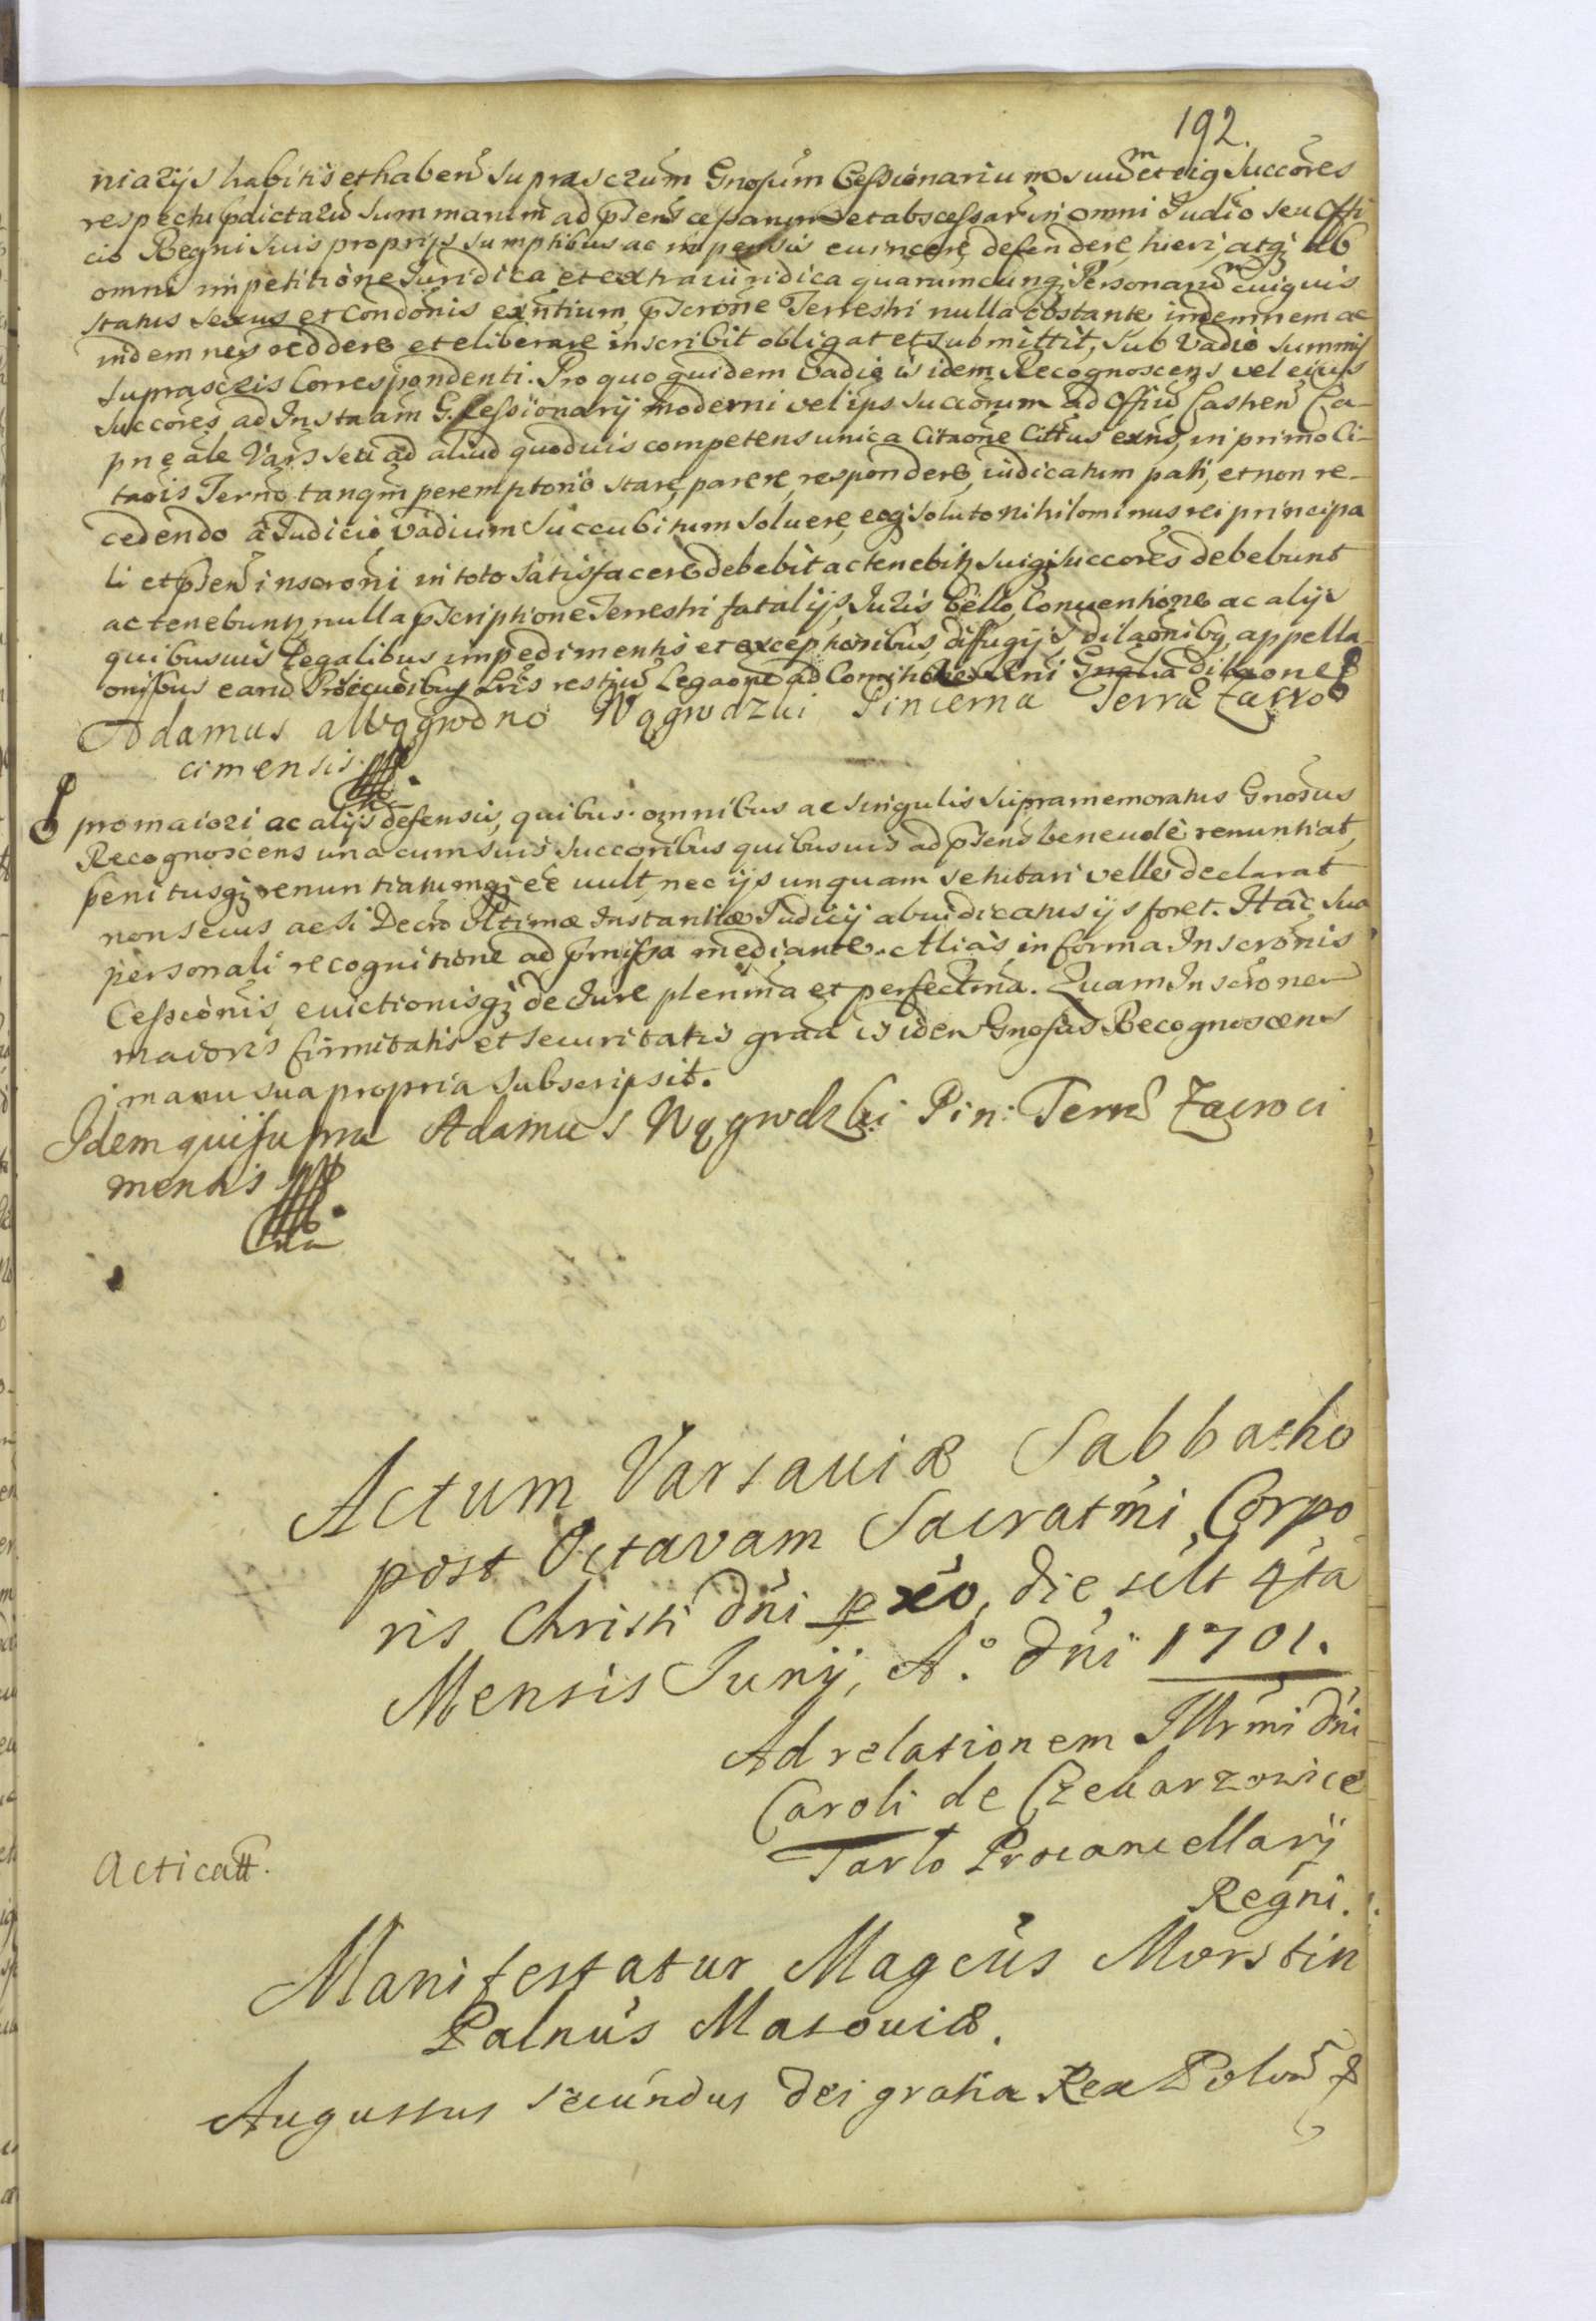 192.
niarijs habitis et haben suprascrum Gnosum Cessionarium suum et eig Succores
respectu pdictaru summarum ad psens cessarum et abscessar in omni Judio seu Offi
cio Regni suis proprijs sumptibus ac impensis euincere, defendere, tueri, atq; ab
omni impetitione Juridica et extraiuridica quarumcunq; Personaru cuiquis
status sexus et Condonis exntium pscrone Terrestri nulla obstante indemnem ac
indemnes reddere et eliberare inscribit obligat et submittit, sub vadio summis
suprascris Correspondenti. Pro quo quidem vadio is idem Recognoscens vel eius
Succores ad Instaam G. Cessionarij moderni vel ips succorum ad Offiu Castren Ca-
pneale Vars seu ad aliud quoduis competens unica Citaone Cittus exns, in primo Ci-
taois Terno tanqm peremptorio stare, parere, respondere, iudicatum pati, et non re-
cedendo a Judicio vadium succubitum soluere, eoq; soluto nihilominus rei principa
li et psen inscroni in toto satisfacere debebit ac tenebitz suiq; succores debebunt
ac tenebuntz nulla pscriptione Terrestri fatalijs, Juris bello, Conuentione ac alijs
quibusuis legalibus impedimentis et exceptionibus, difugijs, dilaonibq appella-
onibus earu Prosecuoibus Lris restiu Legaone ad Comitia Gnalia dilaone
Adamus a Wągrodno Wągrodzki Pincerna Terræ Zacro
cimensis.
pro maiori ac alijs defensis, quibus omnibus ac singulis supramemoratus Gnosus
Recognoscens una cum suis Succoribus quibusuis ad psens beneuole renuntiat,
penitusq; renuntiatumq; ee uult, nec ijs unquam se tutari velle declarat
non secus ac si Decro Ultimæ Instantiæ Judicij abiudicatus ijs foret. Hac sua
personali recognitione ad pmissa mediante. Alias in forma Inscronis
Cessionis euictionisq; de Jure plenima et perfectma. Quam Inscronem
maioris firmitatis et securitatis graa is idem Gnosus Recognoscens
manu sua propria subscripsit.
Idem qui supra Adamus Wągrodzki Pin: Terræ Zacroci
mensis
Actum Varsauiæ Sabbatho
post Octavam Sacratmi Corpo
ris Christi Dni pxéo, die scilt 4ta
Mensis Junij, A.° Dni 1701.
Ad relationem Illrmi Dni
Caroli de Czekarzowice
Tarło Procancellarij
Regni.
Acticatt.
Manifestatur Magcus Morstin
Palnus Masouiæ.
Augustus Secundus Dei gratia Rex Polon &